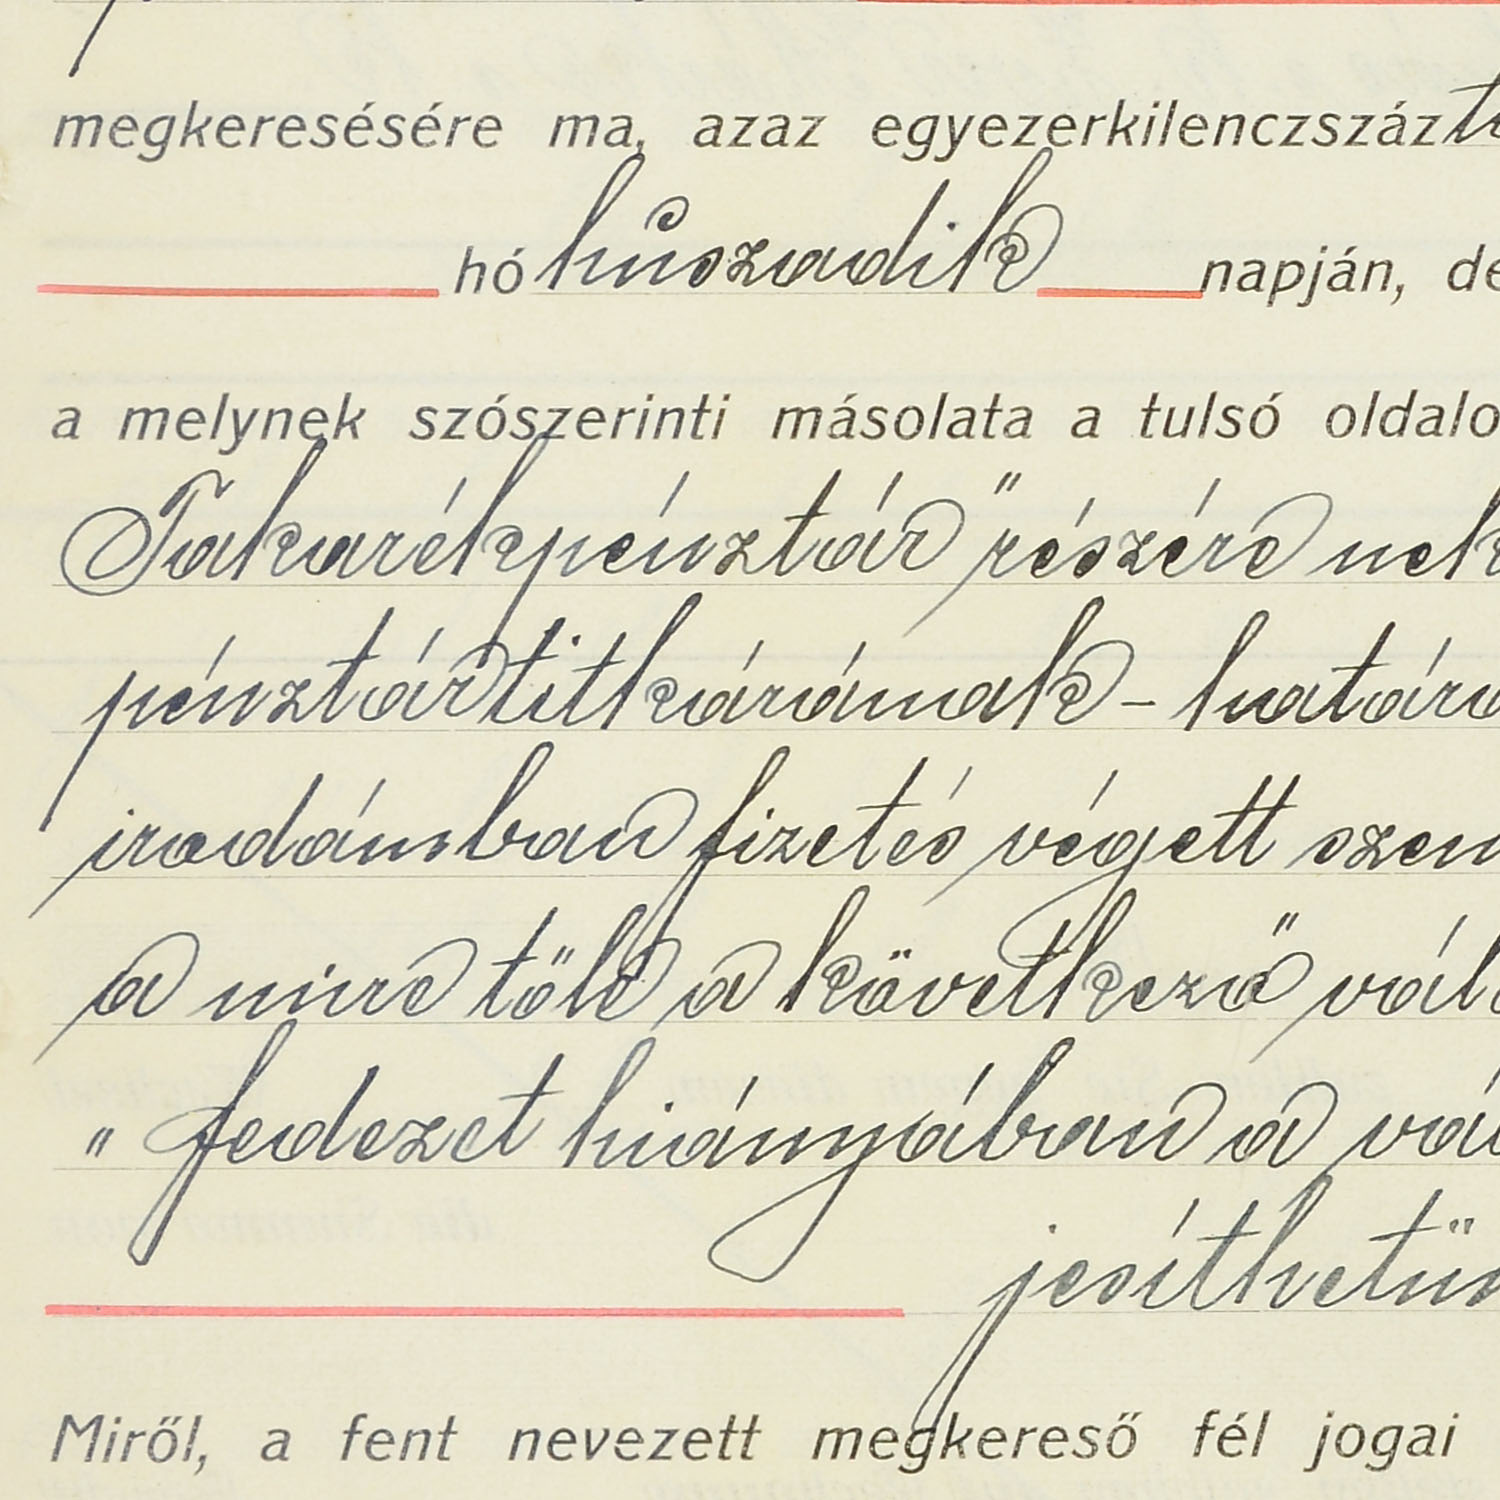 megkeresésére ma, azaz egyezerkilenczszáz
hó húszadik napján, de
a melynek szószerinti másolata a tulsó oldalo
Takarékpénztár" részére nek
pénztár titkárának - határo
irodámban fizetés végett szem
a mire tőle a következő vál
"fedezet hiányában a vál
jesíthetün
Miről, a fent nevezett megkereső fél jogai